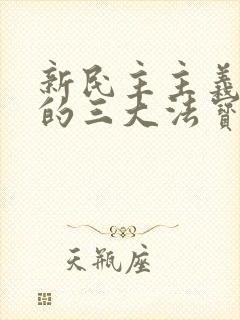 新民主主義
的三大法寶
天瓶座